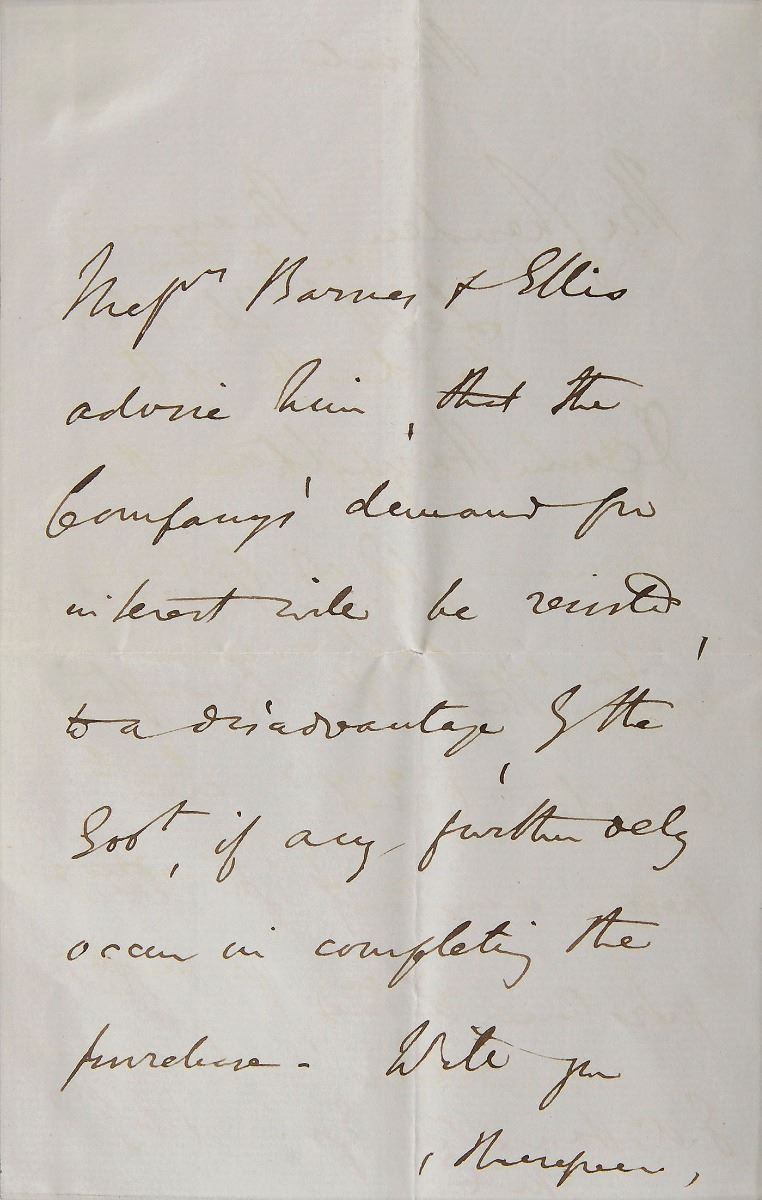 Messrs Barnes & Ellis
advise him, that the
Company's demand for
interest will be resisted,
to a disadvantage, by the
Govt, if any further delay
occur in completing the
purchase - Will you
, therefore,